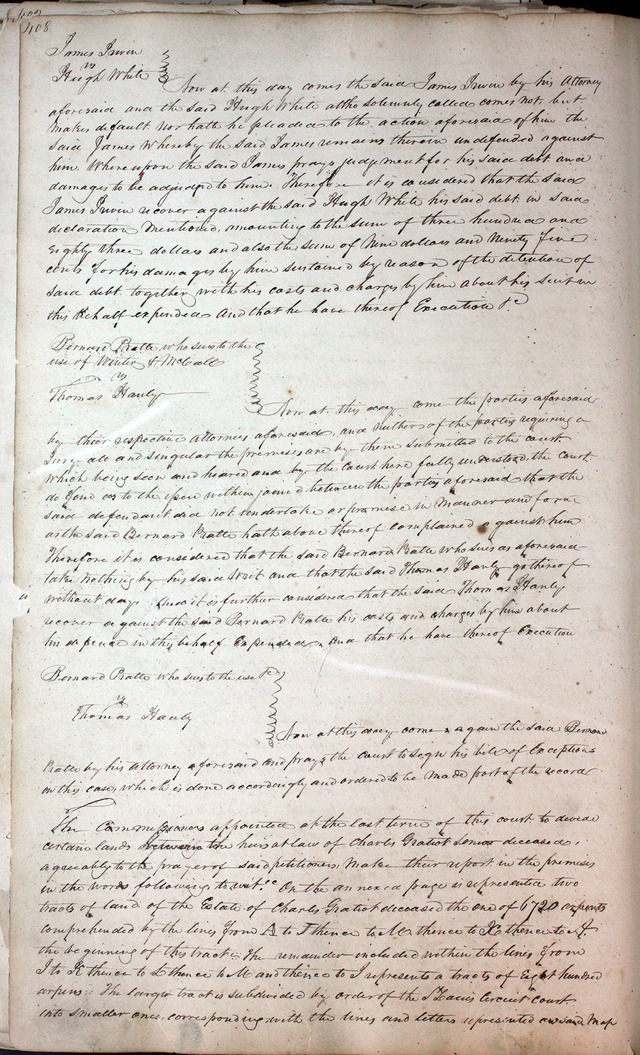 408
James Irwin
vs
Hugh White
Now at this day comes the said James Irwin by his Attorney
aforesaid and the said Hugh White altho solemnly called comes not but
makes default nor hath he pleaded to the action aforesaid of him the
said James Whereby the said James remains therein undefended against
him. Whereupon the said James prays judgement for his said debt and
damages to be adjudged to him. Therefore it is considered that the said
James Irwin recover against the said Hugh White his said debt in said
declaration mentioned, amounting to the sum of three hundred and
Eighty three dollars and also the sum of Nine dollars and Ninety five
cents for his damages by him sustained by reason of the detention of
said debt together with his costs and charges by him about his suit in
this behalf expended And that he have thereof Execution &c
Bernard Pratte who sues to the
use of Winter & McCall
vs
Thomas Hanly
Now at this day come the parties aforesaid
by their respective attornies aforesaid, and neither of the parties requiring a
Jury all and singular the premises are by them submitted to the court
which being seen and heard and by the Court here fully understood, the Court
do find as to the issue within joined between the parties aforesaid that the
said defendant did not undertake or promise in Manner and form
as the said Bernard Pratte hath above thereof complained against him
Therefore it is considered that the said Bernard Pratte who sues as aforesaid
take nothing by his said writ and that the said Thomas Hanly go thereof
without day And it is further considered that the said Thomas Hanly
recover against the said Bernard Pratte his costs and charges by him about
his defence in this behalf Expended And that he have thereof Execution
Bernard Pratte who sues to the use &c
vs
Thomas Hanly
Now at this day comes again the said Bernard
Pratte by his attorney aforesaid and prays the court to sign his bill of Exceptions
in this case, which is done accordingly and ordered to be made part of the record
The Commissioners appointed at the last term of this court to divide
certain lands between the heirs at law of Charles Gratiot Senior deceased
agreeably to the prayer of said petitioners, make their report in the premises
in the words following to wit On the annexed page is represented two
tracts of land of the Estate of Charles Gratiot deceased the one of 6720 arpents
comprehended by the lines from A to I thence to M thence to thence to A
the beginning of this tract The remainder included within the lines from
I to K thence to L thence to M and thence to I represents a tracts of Eight hundred
arpens. The larger tract is subdivided by order of the St Louis Circuit Court
into smaller ones, corresponding with the lines and letters represented on said Map